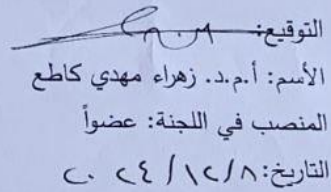 التوقيع:
الأسم: أ.م.د. زهراء مهدي كاطع
المنصب في اللجنة: عضواً
التاريخ: ٢٠٢٤/١٢/٨